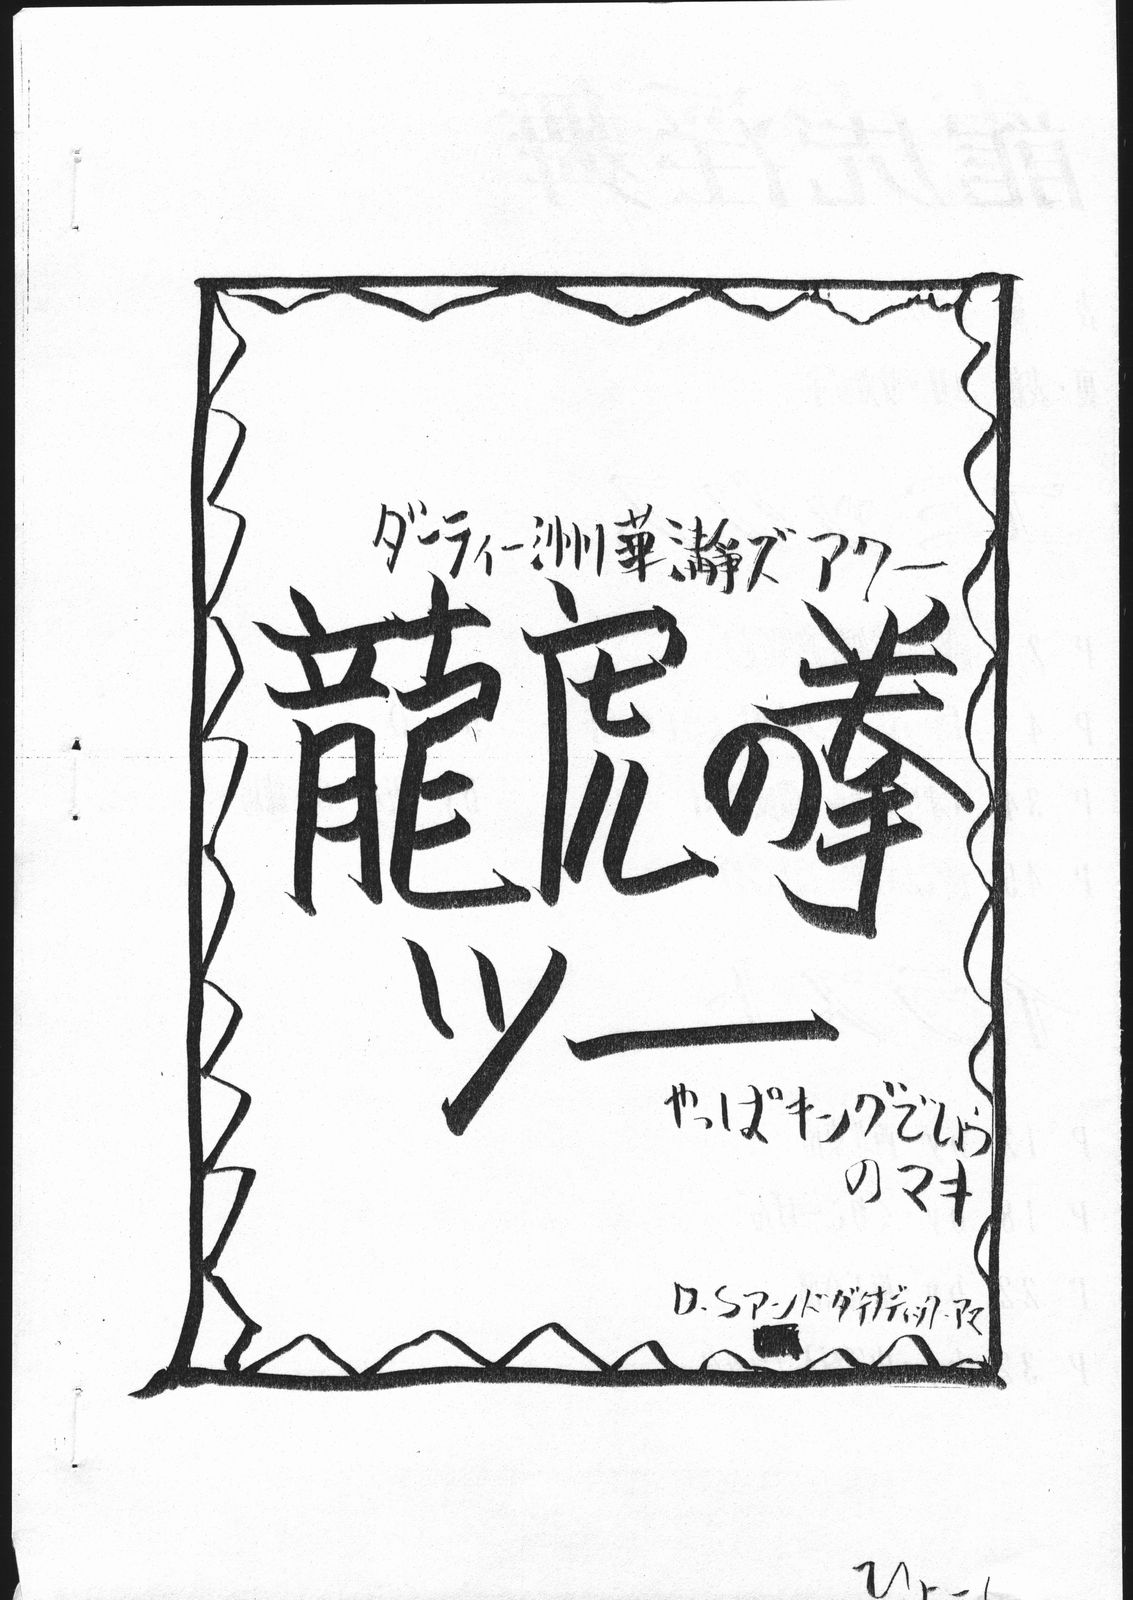 ダーティー洲州華瀞ズアワー
龍虎の拳
ツー
やっぱキングでしょう
のマキ
D.Sアンドダイナディックアマ
ひょーし